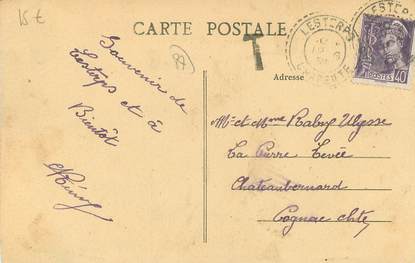 15 €
CARTE POSTALE
LESTERPS
CHARENTE
POSTES 40
T
87
Adresse
Souvenir de
Lesterps et à
Bientôt
Mr et Mme Raby Ulysse
La Pierre Levée
Chateaubernard
Cognac Chte